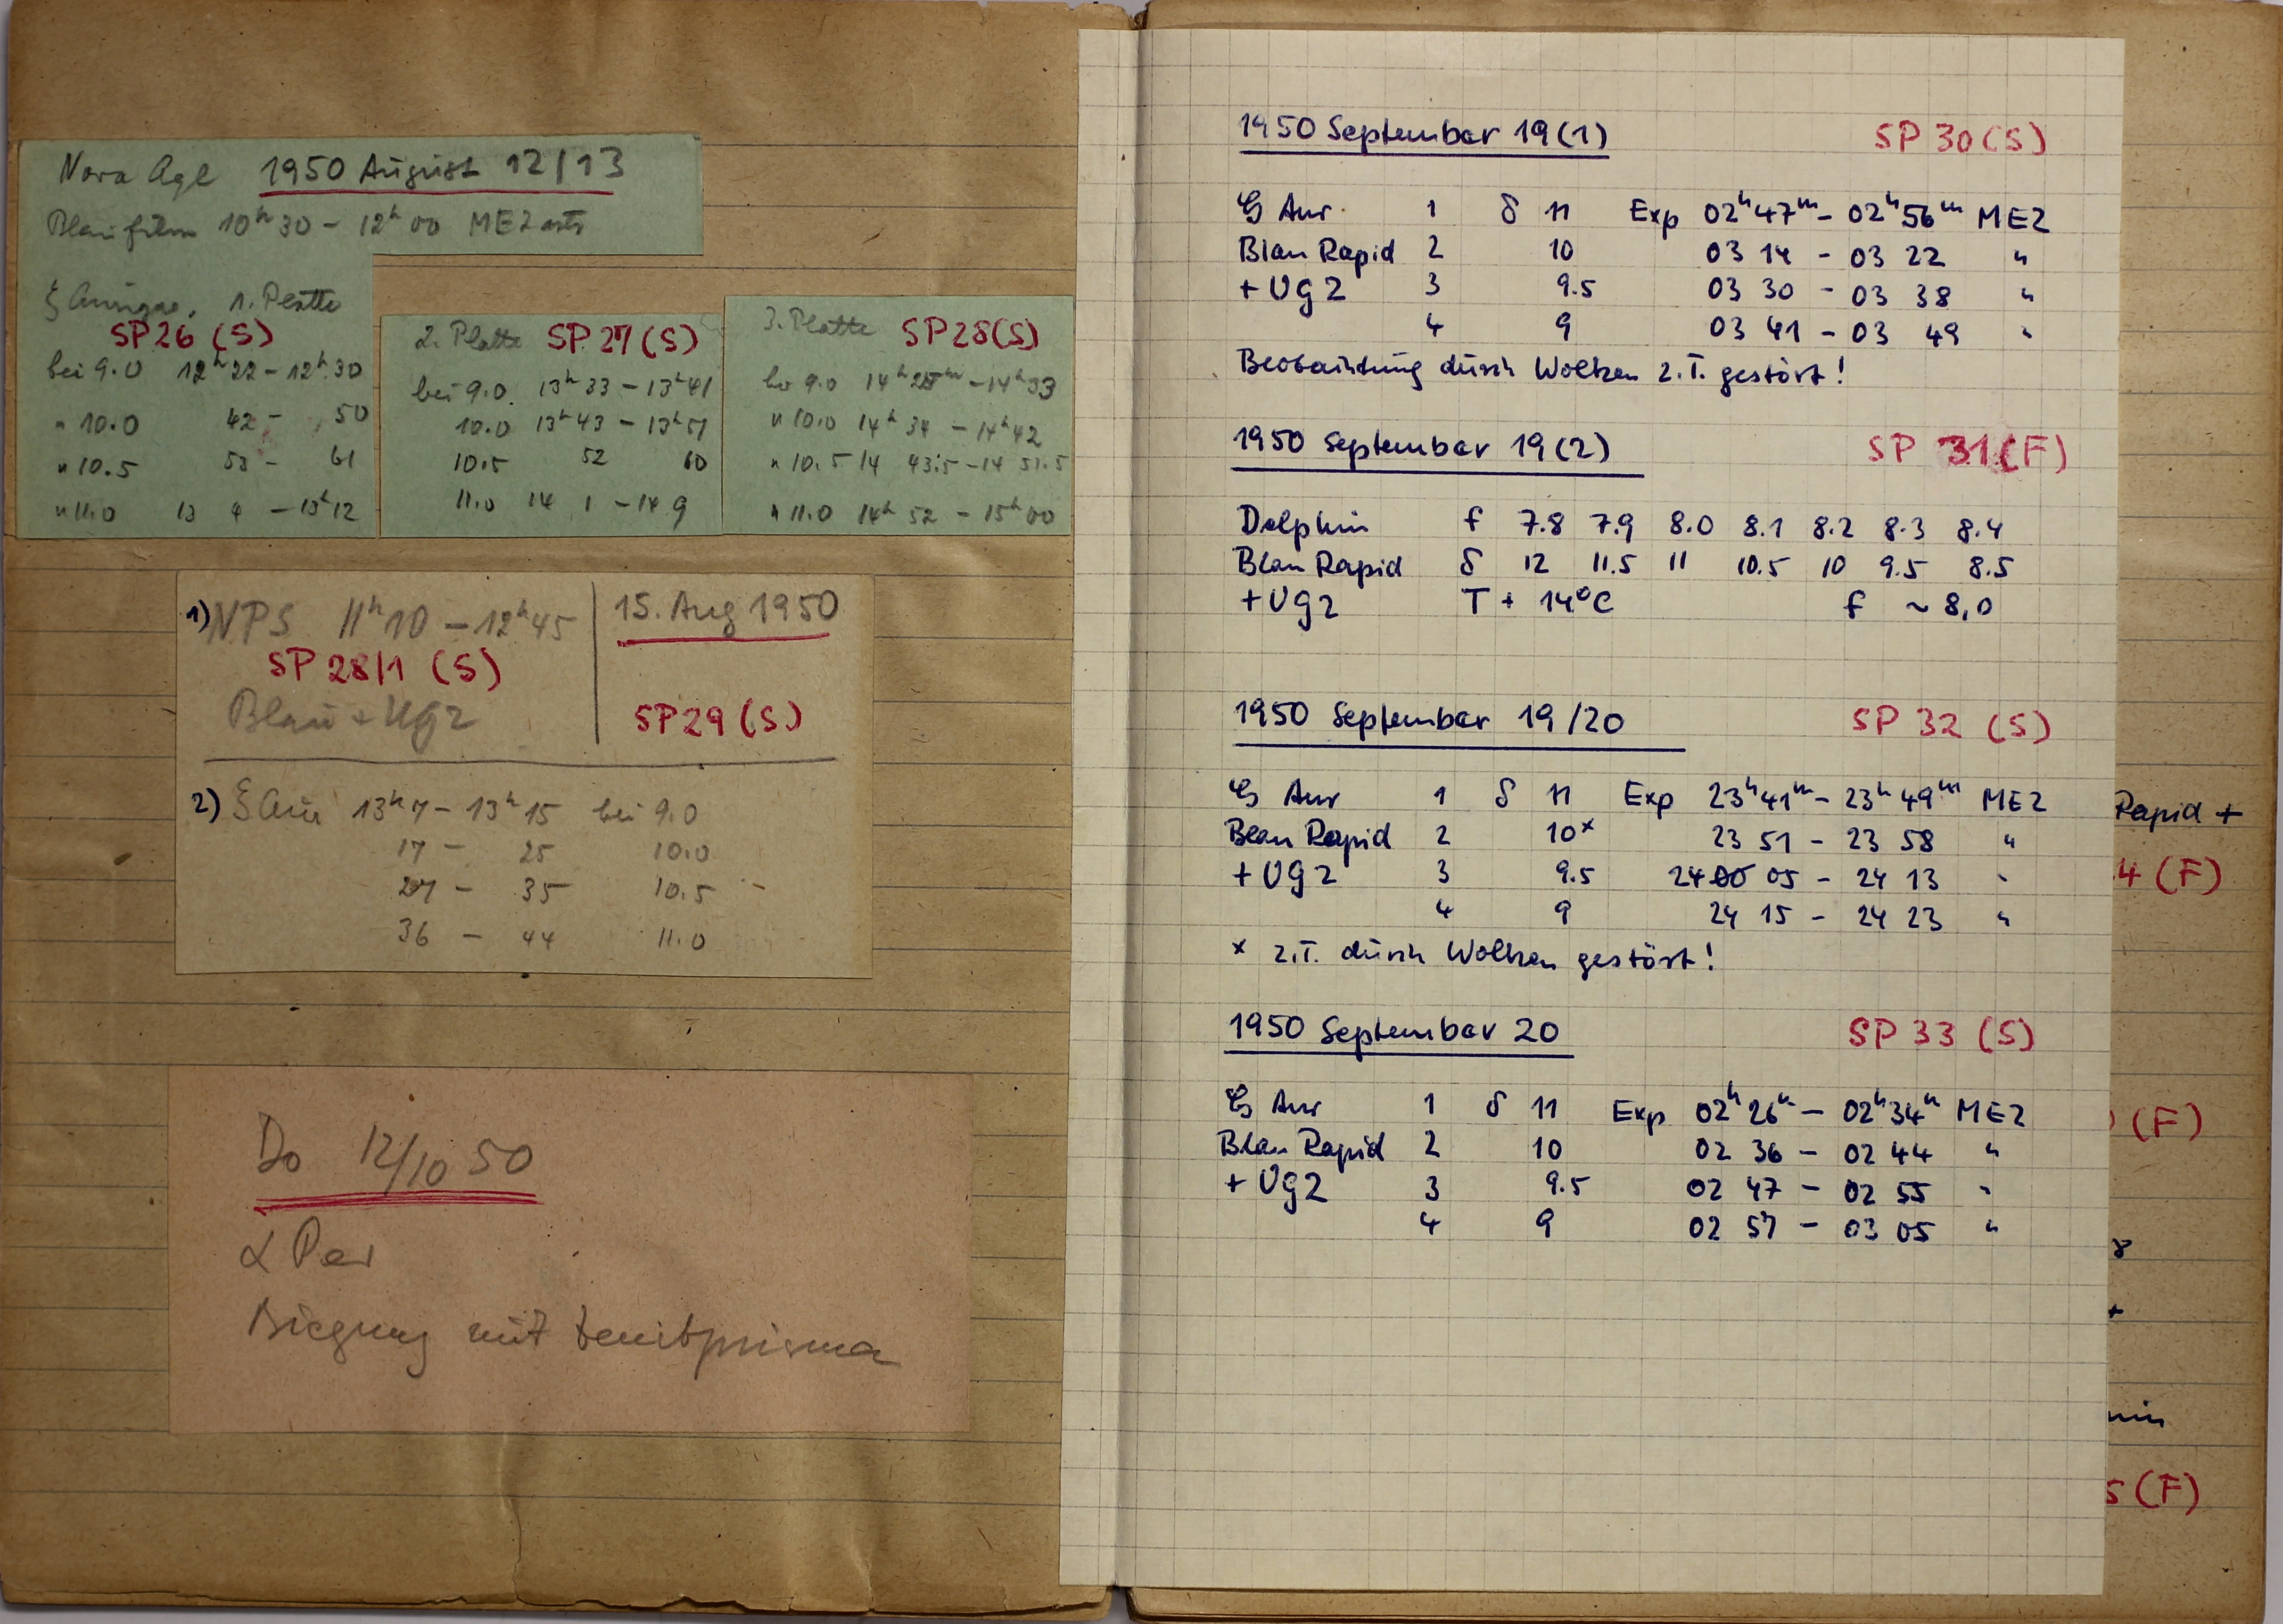 Nova Aql 1950 August 12/13
Blaufilm 10ʰ30 – 12ʰ00 MEZ
ξ Aurigae, 1. Platte
SP26 (S)
bei 9.0 12ʰ22 – 12ʰ30
" 10.0 42 – 50
" 10.5 53 – 61
" 11.0 13 4 – 13ʰ12
2. Platte SP 27 (S)
bei 9.0. 13ʰ33 – 13ʰ41
10.0 13ʰ43 – 13ʰ51
10.5 52 60
11.0 14 1 – 14 9
3. Platte SP28(S)
bei 9.0 14ʰ25ᵐ – 14ʰ33
" 10.0 14ʰ34 – 14ʰ42
" 10.5 14 43.5 – 14 51.5
" 11.0 14ʰ52 – 15ʰ00
1) NPS 11ʰ10 – 12ʰ45
SP 28/1 (S)
Blau + UG2
15. Aug 1950
SP29 (S)
2) ξ Aur 13ʰ7 – 13ʰ15 bei 9.0
17 – 25 10.0
27 – 35 10.5
36 – 44 11.0
Do 12/10 50
α Per
Biegung mit Zenitprisma
1950 September 19(1) SP 30(S)
ζ Aur. 1 δ 11 Exp 02ʰ47ᵐ – 02ʰ56ᵐ MEZ
Blau Rapid 2 10 03 14 – 03 22 "
+ UG2 3 9.5 03 30 – 03 38 "
4 9 03 41 – 03 49 "
Beobachtung durch Wolken z.T. gestört!
1950 September 19(2) SP 31(F)
Delphin f 7.8 7.9 8.0 8.1 8.2 8.3 8.4
Blau Rapid δ 12 11.5 11 10.5 10 9.5 8.5
+ UG2 T + 14°C f ~ 8,0
1950 September 19/20 SP 32 (S)
ζ Aur 1 δ 11 Exp 23ʰ41ᵐ – 23ʰ49ᵐ MEZ
Blau Rapid 2 10ˣ 23 51 – 23 58 "
+ UG2 3 9.5 24 05 – 24 13 "
4 9 24 15 – 24 23 "
x z.T. durch Wolken gestört!
1950 September 20 SP 33 (S)
ζ Aur 1 δ 11 Exp 02ʰ26ᵐ – 02ʰ34ᵐ MEZ
Blau Rapid 2 10 02 36 – 02 44 "
+ UG2 3 9.5 02 47 – 02 55 "
4 9 02 57 – 03 05 "
Rapid +
4 (F)
(F)
8
+
min
5 (F)